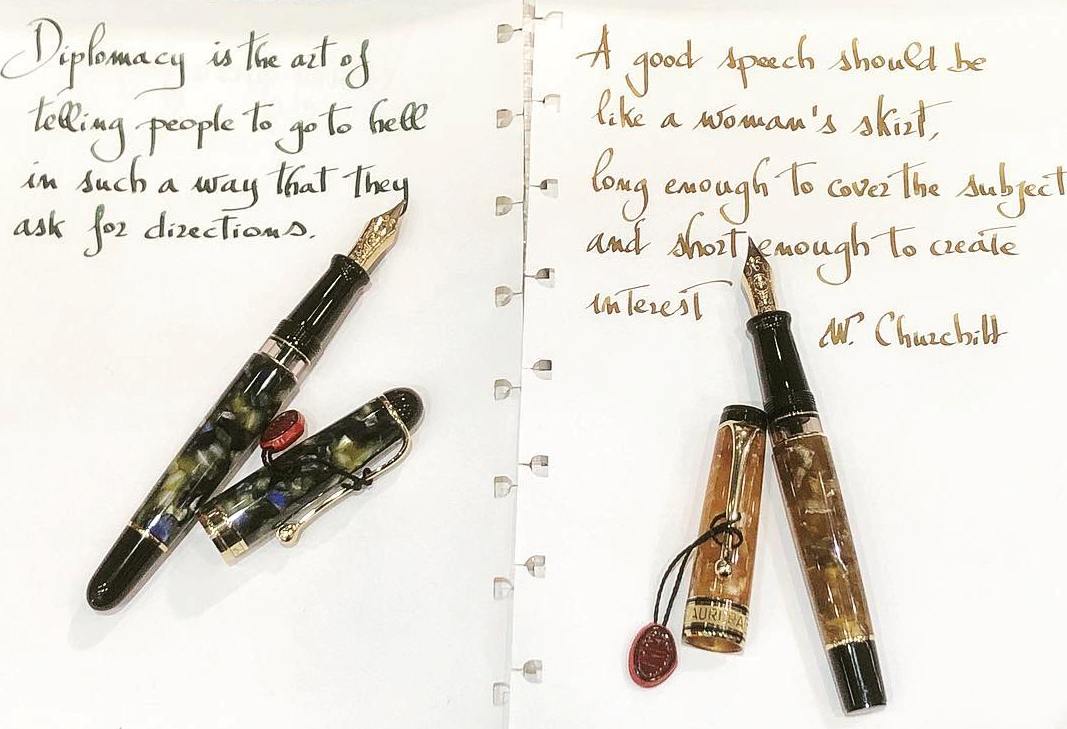 Diplomacy is the art of
telling people to go to hell
in such a way that they
ask for directions.
A good speech should be
like a woman's skirt,
long enough to cover the subject
and short enough to create
interest
W. Churchill
AURORA